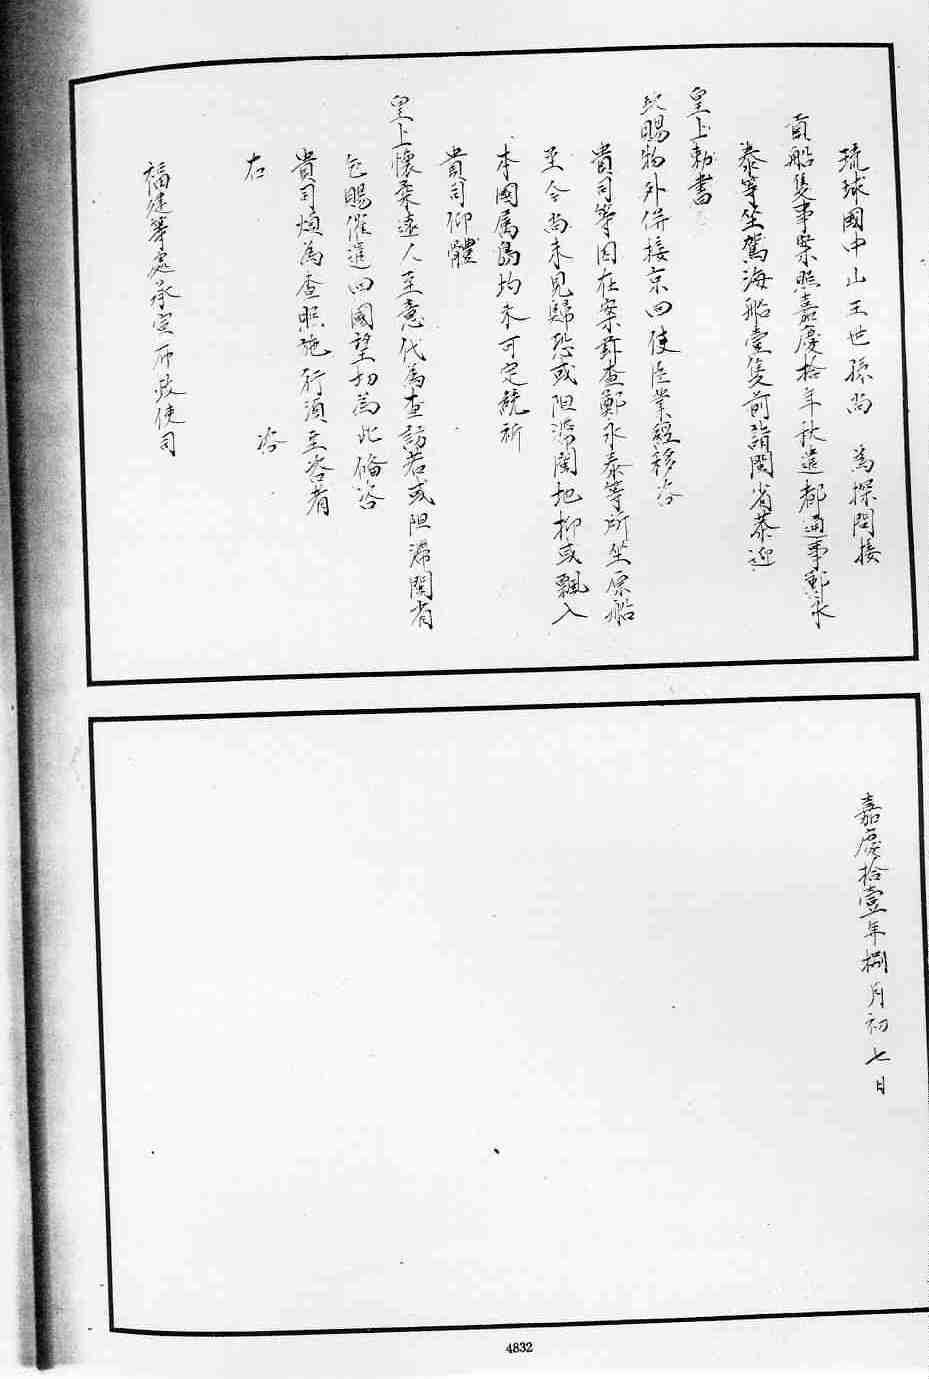 琉球國中山王世孫尚　為探問接
貢船隻事案照嘉慶拾年秋遣都通事鄭永
泰等坐駕海船壹隻前詣閩省恭迎
皇上勅書
欽賜物外併接京回使臣業經移咨
貴司等因在案玆查鄭永泰等所坐原船
至今尚未見歸恐或阻滯閩地抑或飄入
本國属島均未可定統祈
貴司仰體
皇上懷柔遠人至意代為查訪若或阻滯閩省
乞賜催進回國望切為此備咨
貴司煩為查照施行須至咨者
右　咨
福建等處承宣布政使司
嘉慶拾壹年捌月初七日
4832